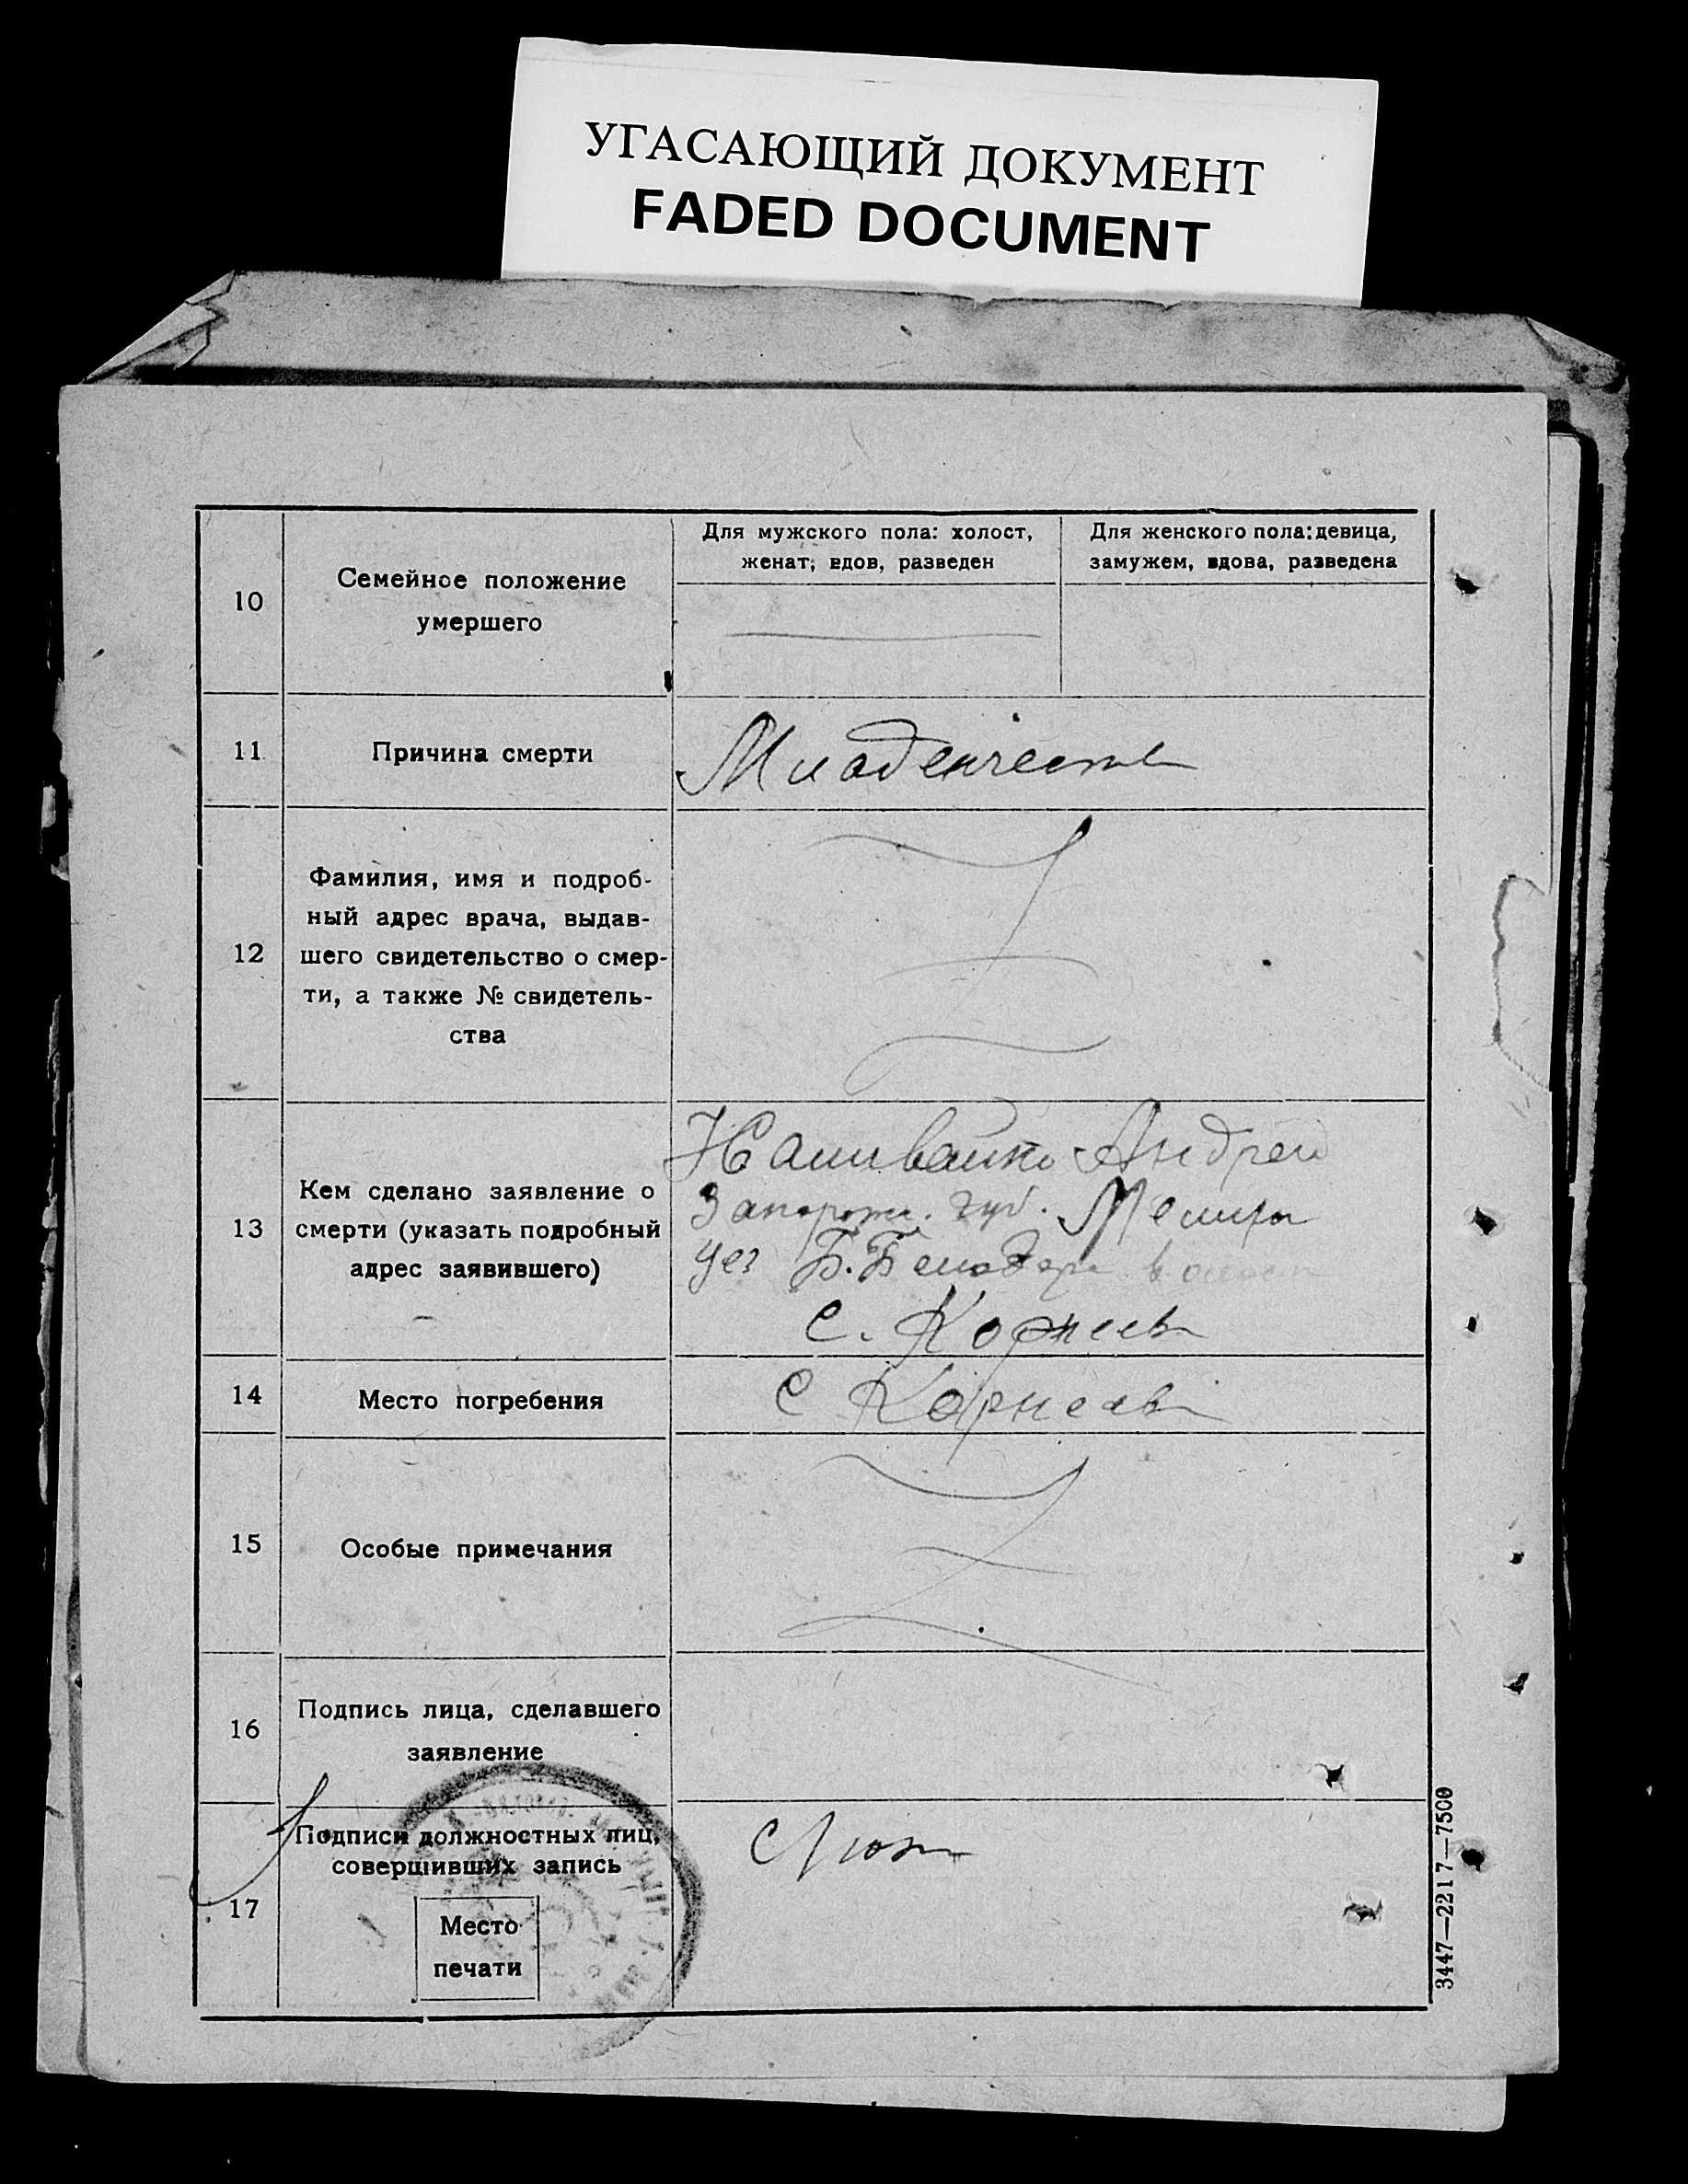 УГАСАЮЩИЙ ДОКУМЕНТ
FADED DOCUMENT
10
Семейное положение
умершего
Для мужского пола: холост,
женат; вдов, разведен
Для женского пола: девица,
замужем, вдова, разведена
11
Причина смерти
Младенчество
12
Фамилия, имя и подроб-
ный адрес врача, выдав-
шего свидетельство о смер-
ти, а также № свидетель-
ства
13
Кем сделано заявление о
смерти (указать подробный
адрес заявившего)
Наливайко Андрей
Запорож. губ. Мелит
уез Б. Белозер
с. Корнеев
14
Место погребения
с Корнеев
15
Особые примечания
16
Подпись лица, сделавшего
заявление
17
Подписи должностных лиц,
совершивших запись
Место
печати
3447—2217—7500